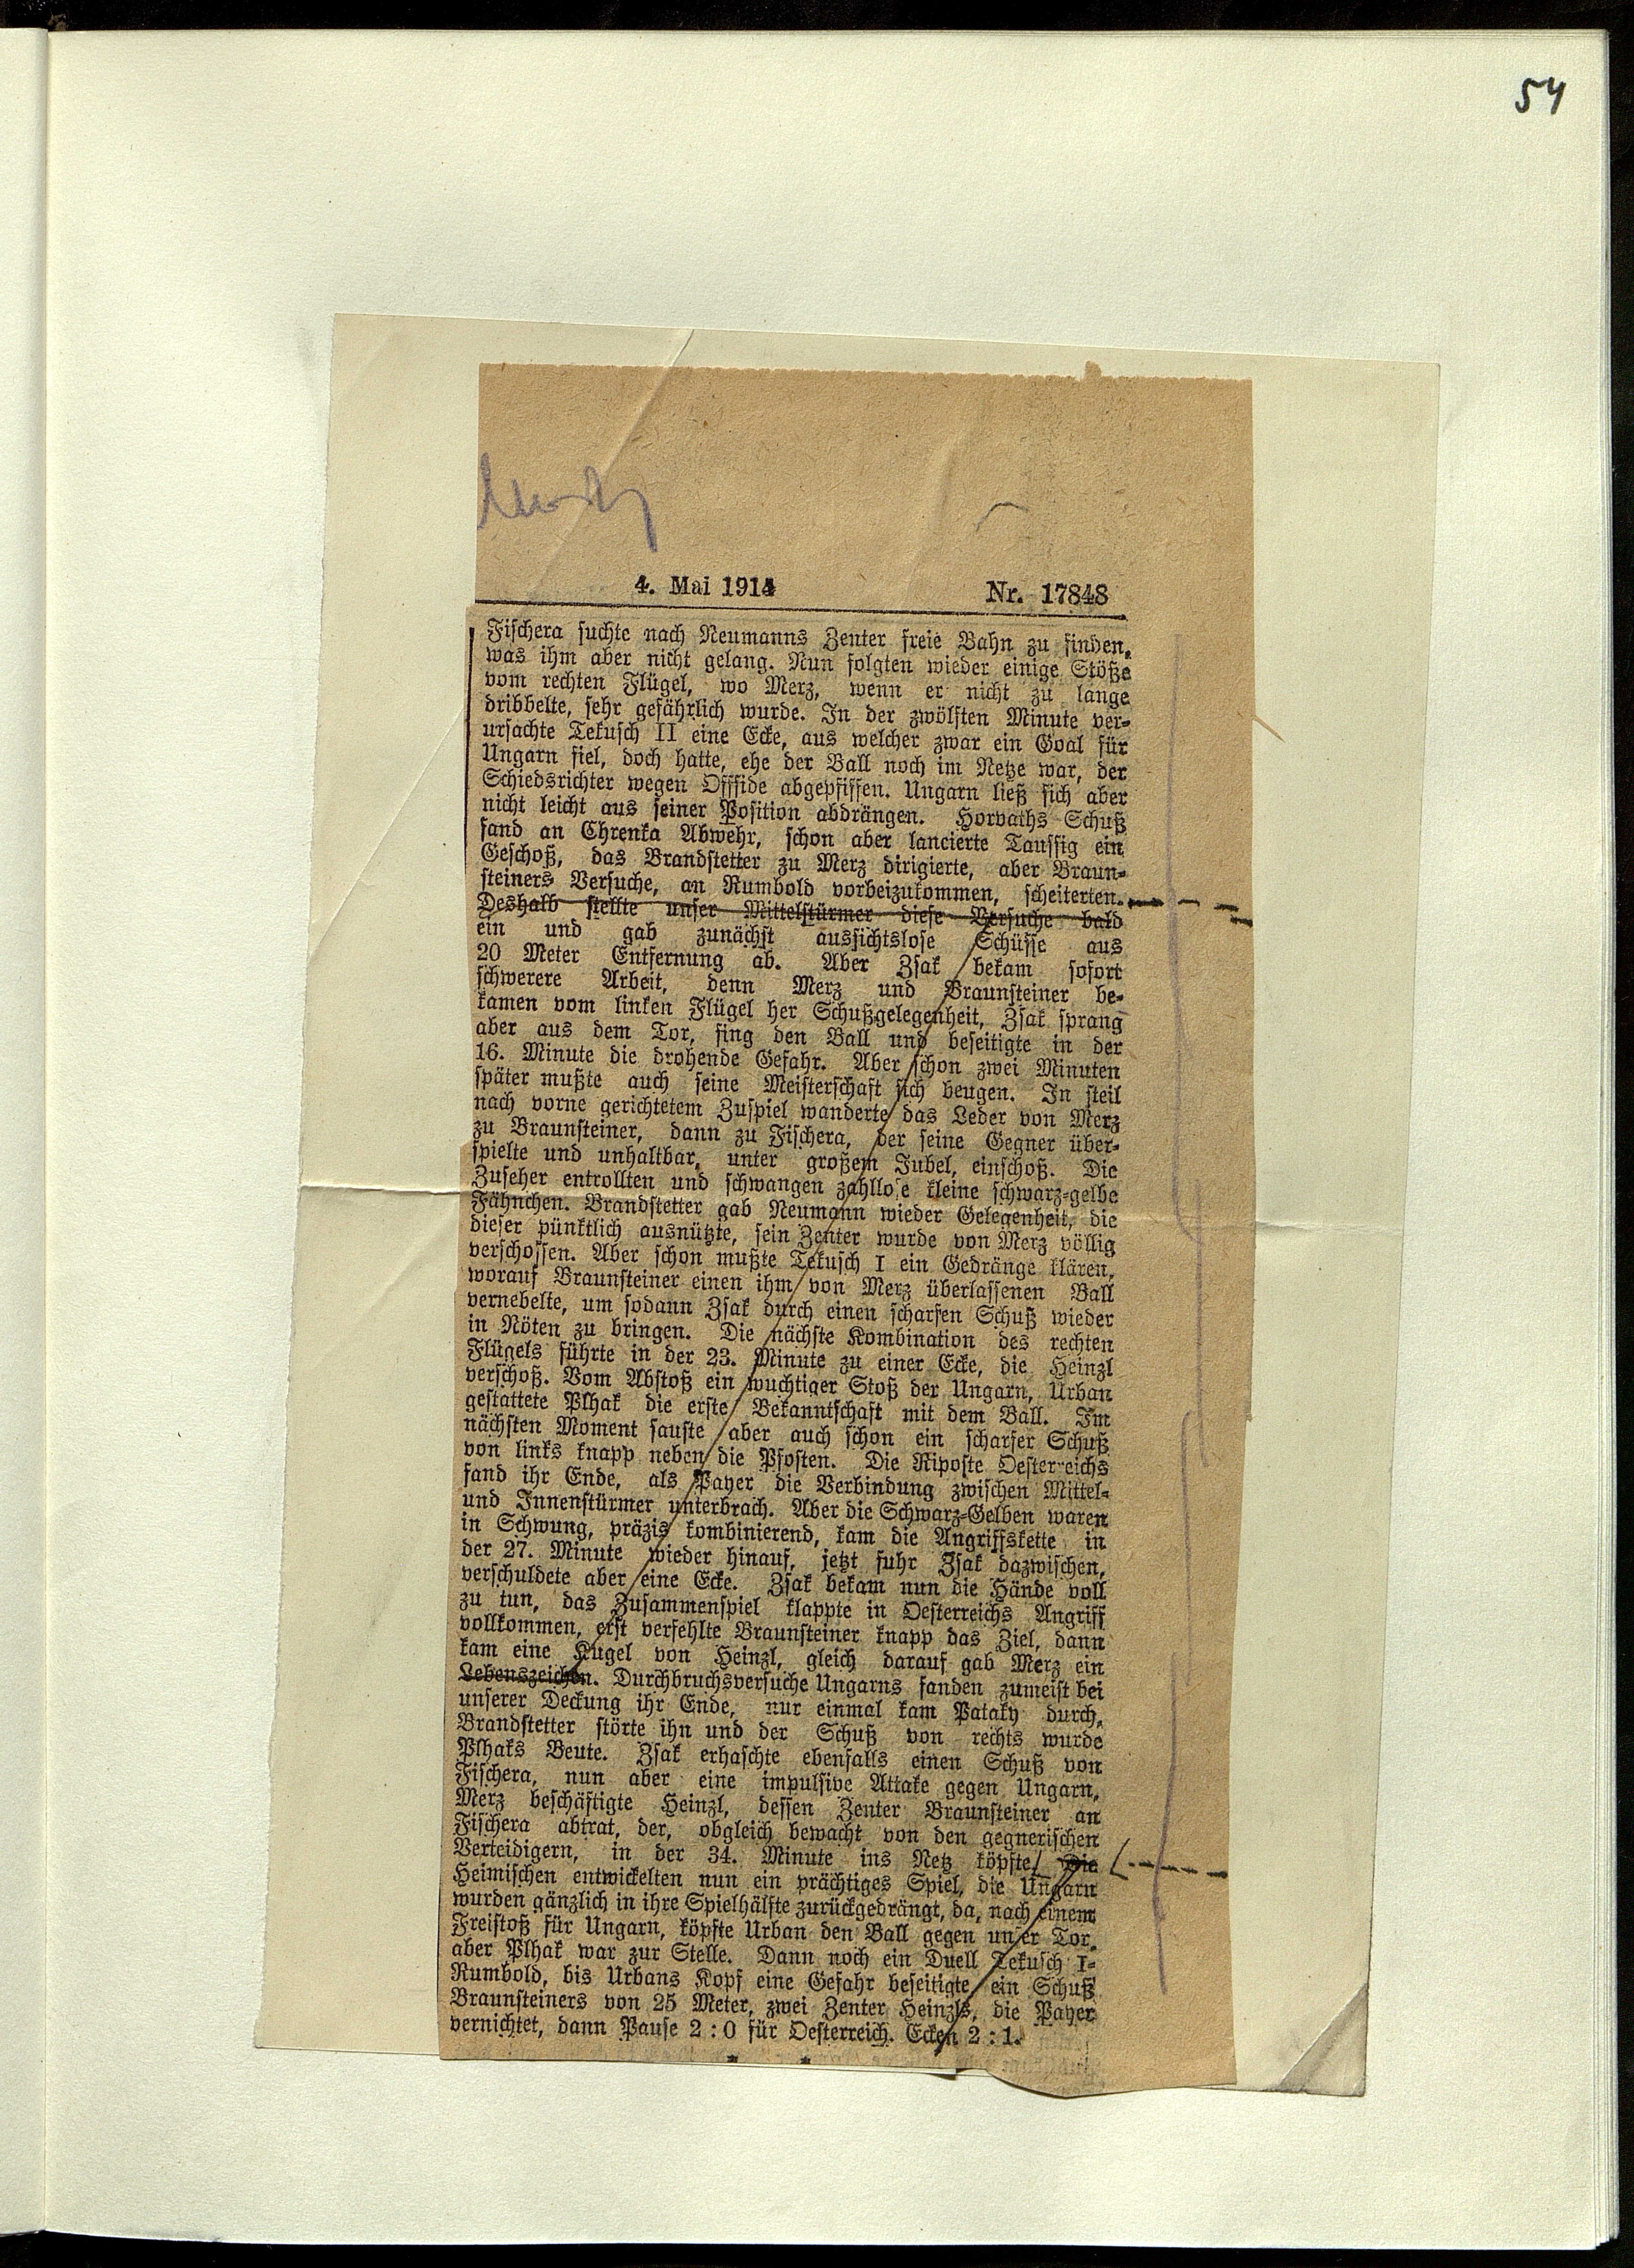 54
4. Mai 1914 Nr. 17848
Fischera suchte nach Neumanns Zenter freie Bahn zu finden,
was ihm aber nicht gelang. Nun folgten wieder einige Stöße
vom rechten Flügel, wo Merz, wenn er nicht zu lange
dribbelte, sehr gefährlich wurde. In der zwölften Minute ver-
ursachte Tekusch II eine Ecke, aus welcher zwar ein Goal für
Ungarn fiel, doch hatte, ehe der Ball noch im Netze war, der
Schiedsrichter wegen Offside abgepfiffen. Ungarn ließ sich aber
nicht leicht aus seiner Position abdrängen. Horvaths Schuß
fand an Chrenka Abwehr, schon aber lancierte Taussig ein
Geschoß, das Brandstetter zu Merz dirigierte, aber Braun-
steiners Versuche, an Rumbold vorbeizukommen, scheiterten.
Deshalb stellte unser Mittelstürmer diese Versuche bald
ein und gab zunächst aussichtslose Schüsse aus
20 Meter Entfernung ab. Aber Zsak bekam sofort
schwerere Arbeit, denn Merz und Braunsteiner be-
kamen vom linken Flügel her Schußgelegenheit, Zsak sprang
aber aus dem Tor, fing den Ball und beseitigte in der
16. Minute die drohende Gefahr. Aber schon zwei Minuten
später mußte auch seine Meisterschaft sich beugen. In steil
nach vorne gerichtetem Zuspiel wanderte das Leder von Merz
zu Braunsteiner, dann zu Fischera, der seine Gegner über-
spielte und unhaltbar, unter großem Jubel, einschoß. Die
Zuseher entrollten und schwangen zahllose kleine schwarz-gelbe
Fähnchen. Brandstetter gab Neumann wieder Gelegenheit, die
dieser pünktlich ausnützte, sein Zenter wurde von Merz völlig
verschossen. Aber schon mußte Tekusch I ein Gedränge klären,
worauf Braunsteiner einen ihm von Merz überlassenen Ball
vernebelte, um sodann Zsak durch einen scharfen Schuß wieder
in Nöten zu bringen. Die nächste Kombination des rechten
Flügels führte in der 23. Minute zu einer Ecke, die Heinzl
verschoß. Vom Abstoß ein wuchtiger Stoß der Ungarn, Urban
gestattete Plhak die erste Bekanntschaft mit dem Ball. Im
nächsten Moment sauste aber auch schon ein scharfer Schuß
von links knapp neben die Pfosten. Die Riposte Oesterreichs
fand ihr Ende, als Payer die Verbindung zwischen Mittel-
und Innenstürmer unterbrach. Aber die Schwarz-Gelben waren
in Schwung, präzis kombinierend, kam die Angriffskette in
der 27. Minute wieder hinauf, jetzt fuhr Zsak dazwischen,
verschuldete aber eine Ecke. Zsak bekam nun die Hände voll
zu tun, das Zusammenspiel klappte in Oesterreichs Angriff
vollkommen, erst verfehlte Braunsteiner knapp das Ziel, dann
kam eine Kugel von Heinzl, gleich darauf gab Merz ein
Lebenszeichen. Durchbruchsversuche Ungarns fanden zumeist bei
unserer Deckung ihr Ende, nur einmal kam Pataky durch,
Brandstetter störte ihn und der Schuß von rechts wurde
Plhaks Beute. Zsak erhaschte ebenfalls einen Schuß von
Fischera, nun aber eine impulsive Attake gegen Ungarn,
Merz beschäftigte Heinzl, dessen Zenter Braunsteiner an
Fischera abtrat, der, obgleich bewacht von den gegnerischen
Verteidigern, in der 34. Minute ins Netz köpfte. Die
Heimischen entwickelten nun ein prächtiges Spiel, die Ungarn
wurden gänzlich in ihre Spielhälfte zurückgedrängt, da, nach einem
Freistoß für Ungarn, köpfte Urban den Ball gegen unser Tor,
aber Plhak war zur Stelle. Dann noch ein Duell Tekusch I-
Rumbold, bis Urbans Kopf eine Gefahr beseitigte, ein Schuß
Braunsteiners von 25 Meter, zwei Zenter Heinzls, die Payer
vernichtet, dann Pause 2 : 0 für Oesterreich. Ecken 2 : 1.